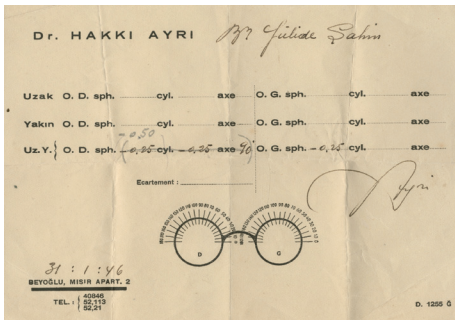 Dr. HAKKI AYRI Bn Jülide Şahin
Uzak O. D. sph. cyl. axe O. G. sph. cyl. axe
Yakın O. D. sph. cyl. axe O. G. sph. cyl. axe
-0,50
Uz.Y.} O. D. sph. (-0,25 cyl. -0,25 axe 90 O. G. sph. -0,25 cyl. axe
Ecartement :
Ayri
D G
31 : 1 : 46
BEYOĞLU, MISIR APART. 2
TEL. : { 40846
52,113
52,21
D. 1255 Ğ